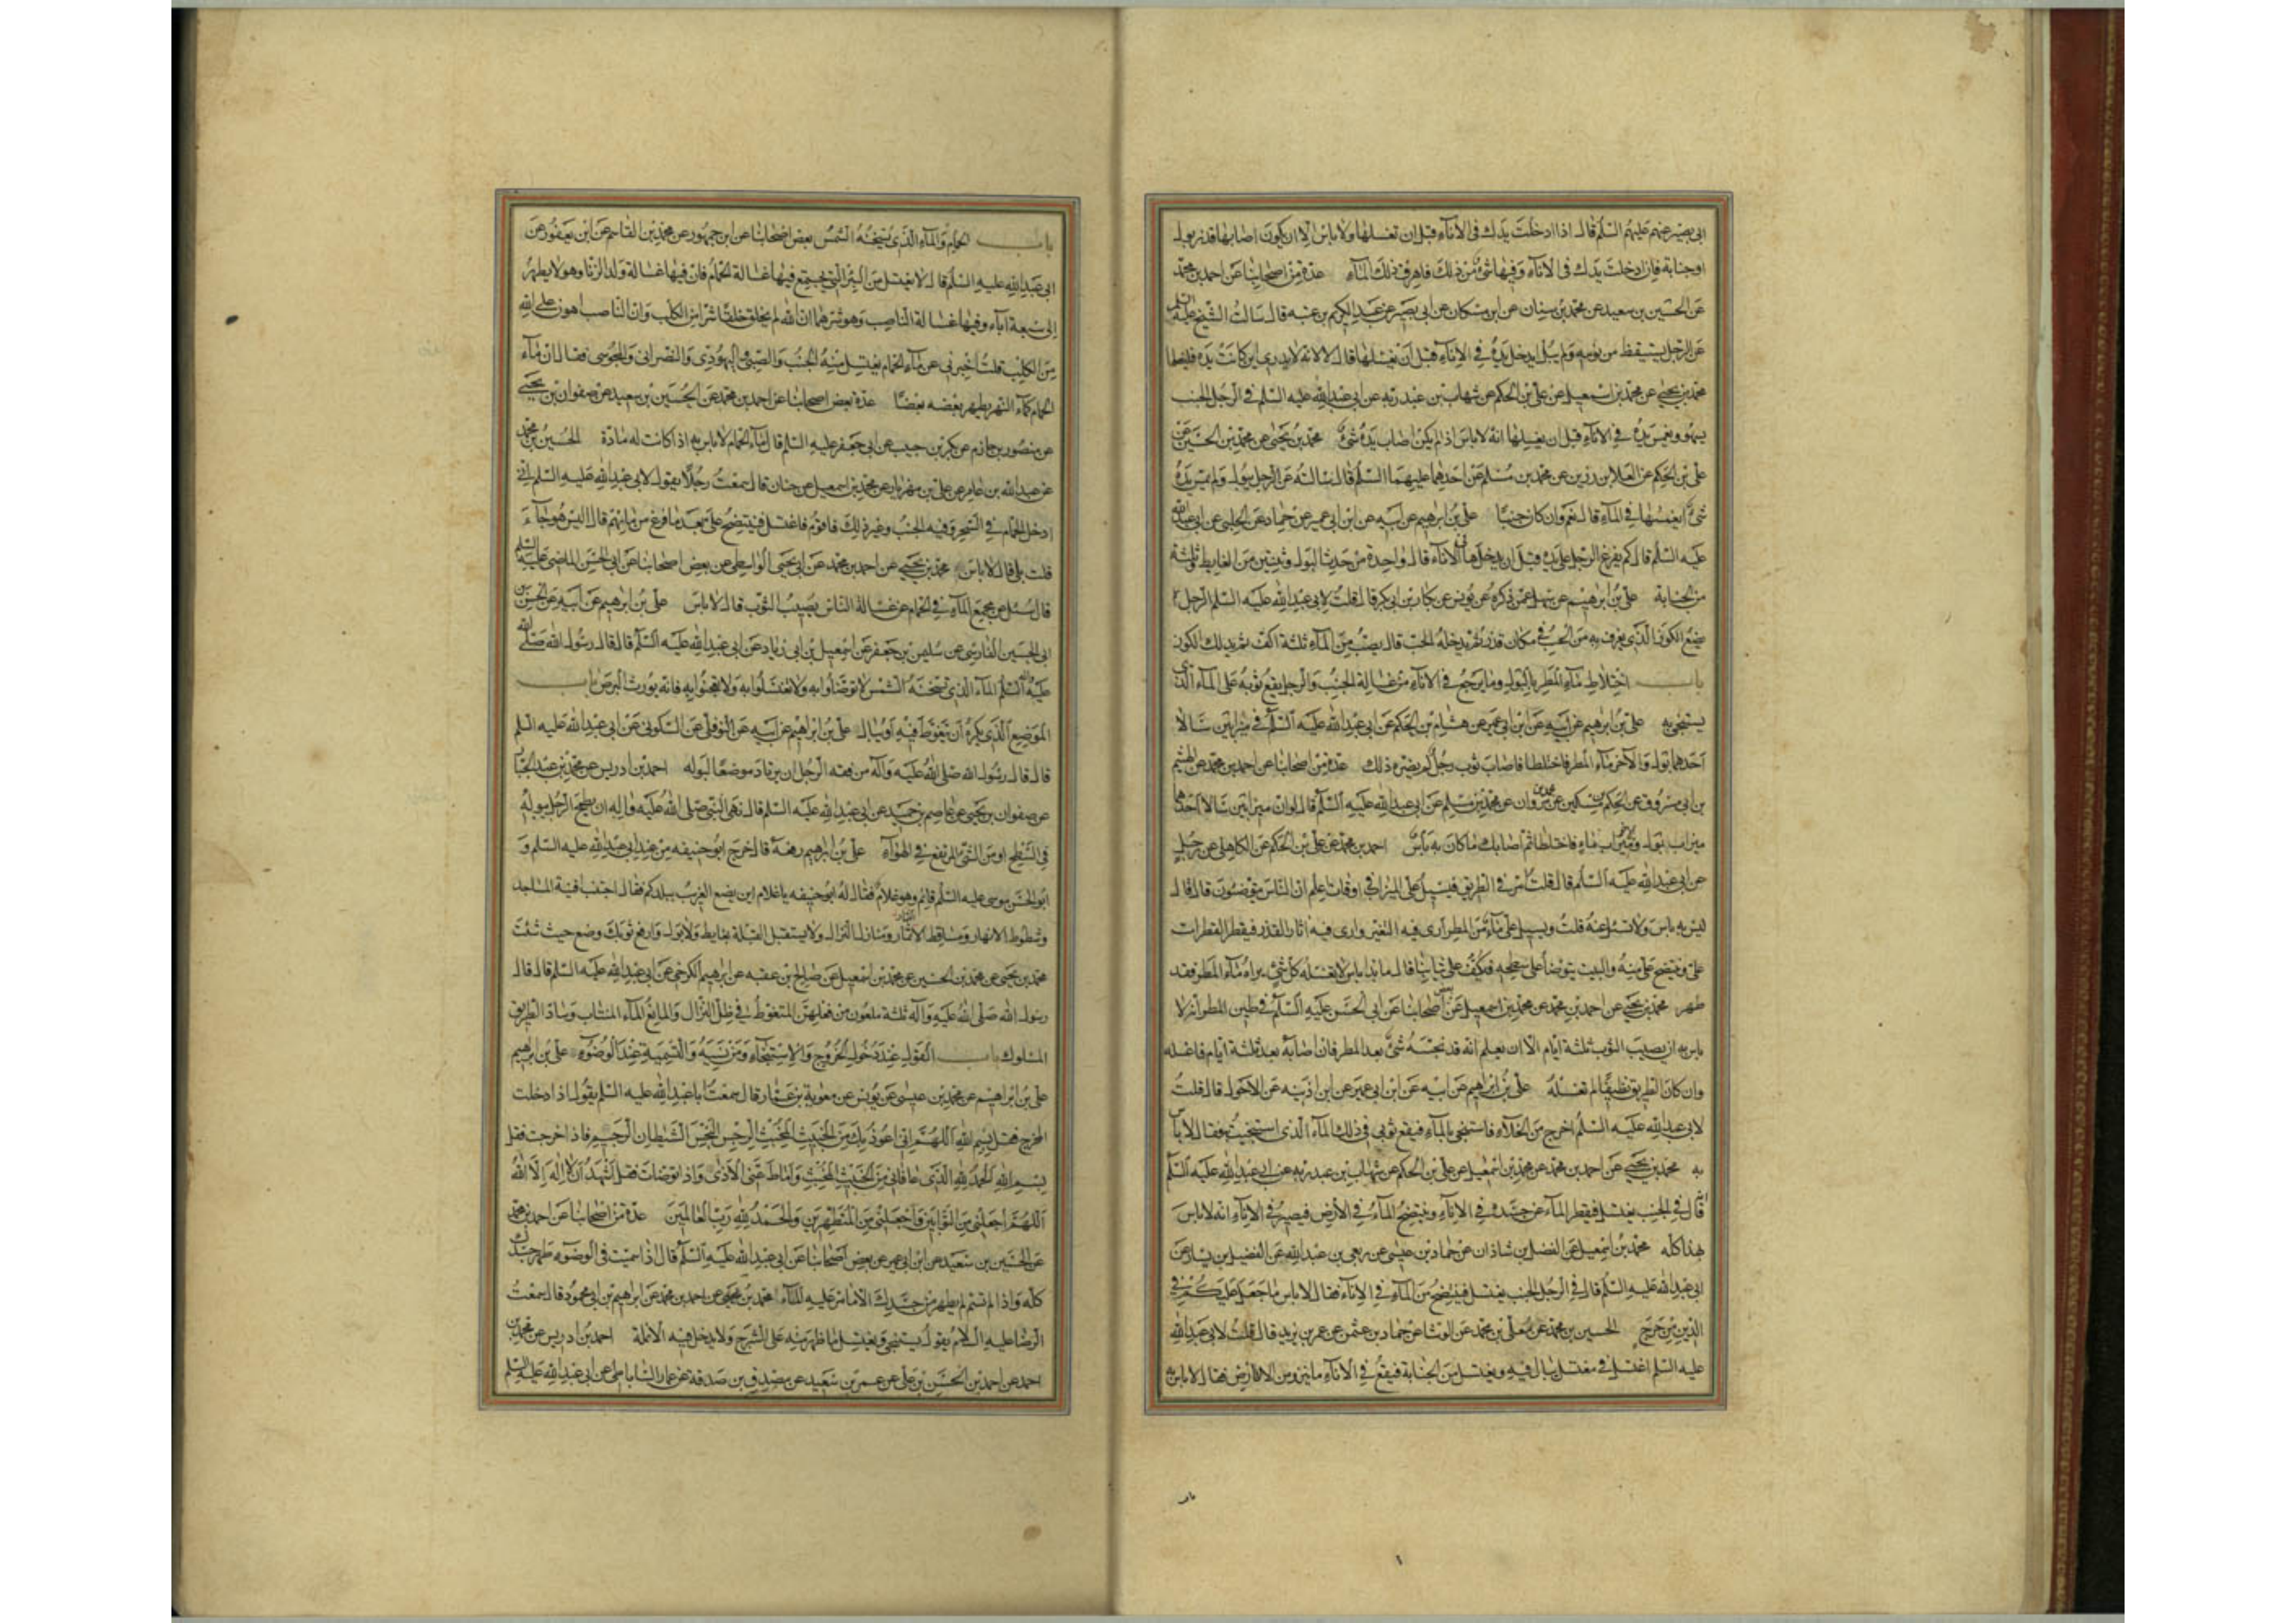 ابى بصير عنهم عليهم السّلم قال اذا ادخلت يدك فى الاناء قبل ان تغسلها ولا باس الا ان يكون اصابها قذر بول
او جنابة فان ادخلت يدك فى الاناء وفيها شئ من ذلك فاهرق ذلك الماء عدة من اصحابنا عن احمد بن محمّد
عن الحسين بن سعيد عن محمد بن سنان عن ابن مسكان عن ابى بصير عن عبد الكريم بن عتبه قال سالت الشيخ عليه السلم
عن الرجل يستيقظ من نومه ولم يبل ايدخل يده في الاناء قبل ان يغسلها قال لا لانه لا يدرى اين كانت يده فليغسلها
محمد بن يحيى عن محمد بن اسمعيل عن على بن الحكم عن شهاب بن عبد ربه عن ابى عبد الله عليه السلم فى الرجل الجنب
يسهو ويغمس يده في الاناء قبل ان يغسلها انه لا باس اذا لم يكن اصاب يده شئ محمد بن يحيى عن محمد بن الحسين عن
على بن الحكم عن العلا بن رزين عن محمد بن مسلم عن احدهما عليهما السلم قال سالته عن الرجل يبول ولم يمس يده
شئ ايغمسها في الماء قال نعم وان كان جنبا على بن ابراهيم عن ابيه عن ابن ابى عمير عن حماد عن الحلبى عن ابى عبد الله
عليه السلم قال كم يفرغ الرجل على يده قبل ان يدخلها فى الاناء قال واحدة من حدث البول وثنتين من الغايط وثلثة
من الجنابة على بن ابرهيم عن سهل عمن ذكره عن يونس عن بكار بن ابى بكر قال قلت لابى عبد الله عليه السلم الرجل
يضع الكوز الذى يغرف به من الحب في مكان قذر ثم يدخله الحب قال يصب من الماء ثلثة اكف ثم يدلك الكوز
باب اختلاط ماء المطر بالبول وما يرجع فى الاناء من غسالة الجنب والرجل يقع ثوبه على الماء الذى
يستنجى به على بن ابراهيم عن ابيه عن ابن ابى عمير عن هشام بن الحكم عن ابى عبد الله عليه السلم في ميزابين سالا
احدهما بول والاخر ماء المطر فاختلطا فاصاب ثوب رجل لم يضره ذلك عدة من اصحابنا عن احمد بن محمد عن الهيثم
بن ابى مسروق عن الحكم بن مسكين عن محمد بن مروان عن محمد بن مسلم عن ابى عبد الله عليه السلم قال لو ان ميزابين سالا احدهما
ميزاب بول وميزاب ماء فاختلطا ثم اصابك ما كان به باس احمد بن محمد عن على بن الحكم عن الكاهلى عن رجل
عن ابى عبد الله عليه السلم قال قلت امر فى الطريق فيسيل على الميزاب فى اوقات اعلم ان الناس يتوضون قال قال
ليس به باس ولا تسئل عنه قلت ويسيل على ماء من المطر ارى فيه التغير وارى فيه اثار القذر فيقطر القطرات
على وينتضح على منه والبيت يتوضأ على سطحه فيكف على ثيابنا قال ما بذا باس لا يغسله كل شئ يراه ماء المطر فقد
طهر محمد بن يحيى عن احمد بن محمد عن محمد بن اسمعيل عن بعض اصحابنا عن ابى الحسن عليه السلم في طين المطر انه لا
باس به ان يصيب الثوب ثلثة ايام الا ان يعلم انه قد نجسه شئ بعد المطر فان اصابه بعد ثلثة ايام فاغسله
وان كان الطريق نظيفا لم تغسله على بن ابراهيم عن ابيه عن ابن ابى عمير عن ابن اذينه عن الاحول قال قلت
لابى عبد الله عليه السلم اخرج من الخلاء فاستنجى بالماء فيقع ثوبى فى ذلك الماء الذى استنجيت به فقال لا باس
به محمد بن يحيى عن احمد بن محمد عن محمد بن اسمعيل عن على بن الحكم عن شهاب بن عبد ربه عن ابى عبد الله عليه السلم
انه قال فى الجنب يغتسل فيقطر الماء عن جسده في الاناء وينتضح الماء في الارض فيصير في الاناء انه لا باس
بهذا كله محمد بن اسمعيل عن الفضل بن شاذان عن حماد بن عيسى عن ربعى بن عبد الله عن الفضيل بن يسار عن
ابى عبد الله عليه السلم قال في الرجل الجنب يغتسل فينتضح من الماء في الاناء فقال لا باس ما جعل عليكم في
الدين من حرج الحسين بن محمد عن معلى بن محمد عن الوشا عن حماد بن عثمن عن عمر بن يزيد قال قلت لابى عبد الله
عليه السلم اغتسل في مغتسل يبال فيه ويغتسل من الجنابة فيقع في الاناء ما ينزو من الارض فقال لا باس به
باب الحمام والماء الذى تسخنه الشمس بعض اصحابنا عن ابن جمهور عن محمد بن القاسم عن ابن يعفور عن
ابى عبد الله عليه السلم قال لا تغتسل من البئر التى يجتمع فيها غسالة الحمام فان فيها غسالة ولد الزنا وهو لا يطهر
الى سبعة آباء وفيها غسالة الناصب وهو شرهما ان الله لم يخلق خلقا شرا من الكلب وان الناصب اهون على الله
من الكلب قلت اخبرنى عن ماء الحمام يغتسل منه الجنب والصبى واليهودى والنصرانى والمجوسى فقال ان ماء
الحمام كماء النهر يطهر بعضه بعضا عدة بعض اصحابنا عن احمد بن محمد عن الحسين بن سعيد عن صفوان بن يحيى
عن منصور بن حازم عن بكر بن حبيب عن ابى جعفر عليه السلم قال ماء الحمام لا باس به اذا كانت له مادة الحسين بن محمد
عن عبد الله بن عامر عن على بن مهزيار عن محمد بن اسمعيل عن حنان قال سمعت رجلا يقول لابى عبد الله عليه السلم انى
ادخل الحمام في السحر وفيه الجنب وغير ذلك فاقوم فاغتسل فينتضح على بعد ما افرغ من مائهم قال اليس هو جاء
قلت بلى قال لا باس محمد بن يحيى عن احمد بن محمد عن ابى يحيى الواسطى عن بعض اصحابنا عن ابى الحسن الماضى عليه السلم
قال سئل عن مجمع الماء فى الحمام من غسالة الناس يصيب الثوب قال لا باس على بن ابرهيم عن ابيه عن الحسن بن
ابى الحسين الفارسى عن سليمن بن جعفر عن اسمعيل بن ابى زياد عن ابى عبد الله عليه السلم قال قال رسول الله صلى الله
عليه واله السلم الماء الذى تسخنه الشمس لا توضاوا به ولا تغتسلوا به ولا تعجنوا به فانه يورث البرص باب
الموضع الذى يكره ان يتغوط فيه او يبال على بن ابراهيم عن ابيه عن النوفلى عن السكونى عن ابى عبد الله عليه السلم
قال قال رسول الله صلى الله عليه وآله من فقه الرجل ان يرتاد موضعا لبوله احمد بن ادريس عن محمد بن عبد الجبار
عن صفوان بن يحيى عن عاصم بن حميد عن ابى عبد الله عليه السلم قال نهى النبى صلى الله عليه واله ان يطمح الرجل ببوله
فى السطح او من الشئ المرتفع في الهواء على بن ابراهيم رفعه قال خرج ابو حنيفه من عند ابى عبد الله عليه السلم و
ابو الحسن موسى عليه السلم قائم وهو غلام فقال له ابو حنيفه يا غلام اين يضع الغريب ببلدكم فقال اجتنب افنية المساجد
وشطوط الانهار ومساقط الاثمار ومنازل النزال ولا يستقبل القبلة بغايط ولا بول وارفع ثوبك وضع حيث شئت
محمد بن يحيى عن محمد بن الحسين عن محمد بن اسمعيل عن صالح بن عقبه عن ابرهيم الكرخى عن ابى عبد الله عليه السلم قال قال
رسول الله صلى الله عليه وآله ثلثة ملعون من فعلهن المتغوط في ظل النزال والمانع الماء المنتاب وساد الطريق
المسلوك باب القول عند دخول الخروج والاستنجاء ومن نسيه والتسمية عند الوضوء على بن ابراهيم
على بن ابراهيم عن محمد بن عيسى عن يونس عن معوية بن عمار قال سمعت ابا عبد الله عليه السلم يقول اذا دخلت
المخرج فقل بسم الله اللهم انى اعوذ بك من الخبيث المخبث الرجس النجس الشيطان الرجيم فاذا خرجت فقل
بسم الله الحمد لله الذى عافانى من الخبيث المخبث واماط عنى الاذى واذا توضات فقل اشهد ان لا اله الا الله
اللهم اجعلنى من التوابين واجعلنى من المتطهرين والحمد لله رب العالمين عدة من اصحابنا عن احمد بن محمد
عن الحسين بن سعيد عن ابن ابى عمير عن بعض اصحابنا عن ابى عبد الله عليه السلم قال اذا سميت فى الوضوء طهر جسدك
كله واذا لم تسم لم يطهر من جسدك الا ما مر عليه الماء محمد بن يحيى عن احمد بن محمد عن ابرهيم بن ابى محمود قال سمعت
الرضا عليه السلام يقول يستنجى ويغتسل ما ظهر منه على الشرج ولا يدخل فيه الانملة احمد بن ادريس عن محمد بن
احمد عن احمد بن الحسن بن على عن عمر بن سعيد عن مصدق بن صدقة عن عمار الساباطى عن ابى عبد الله عليه السلم